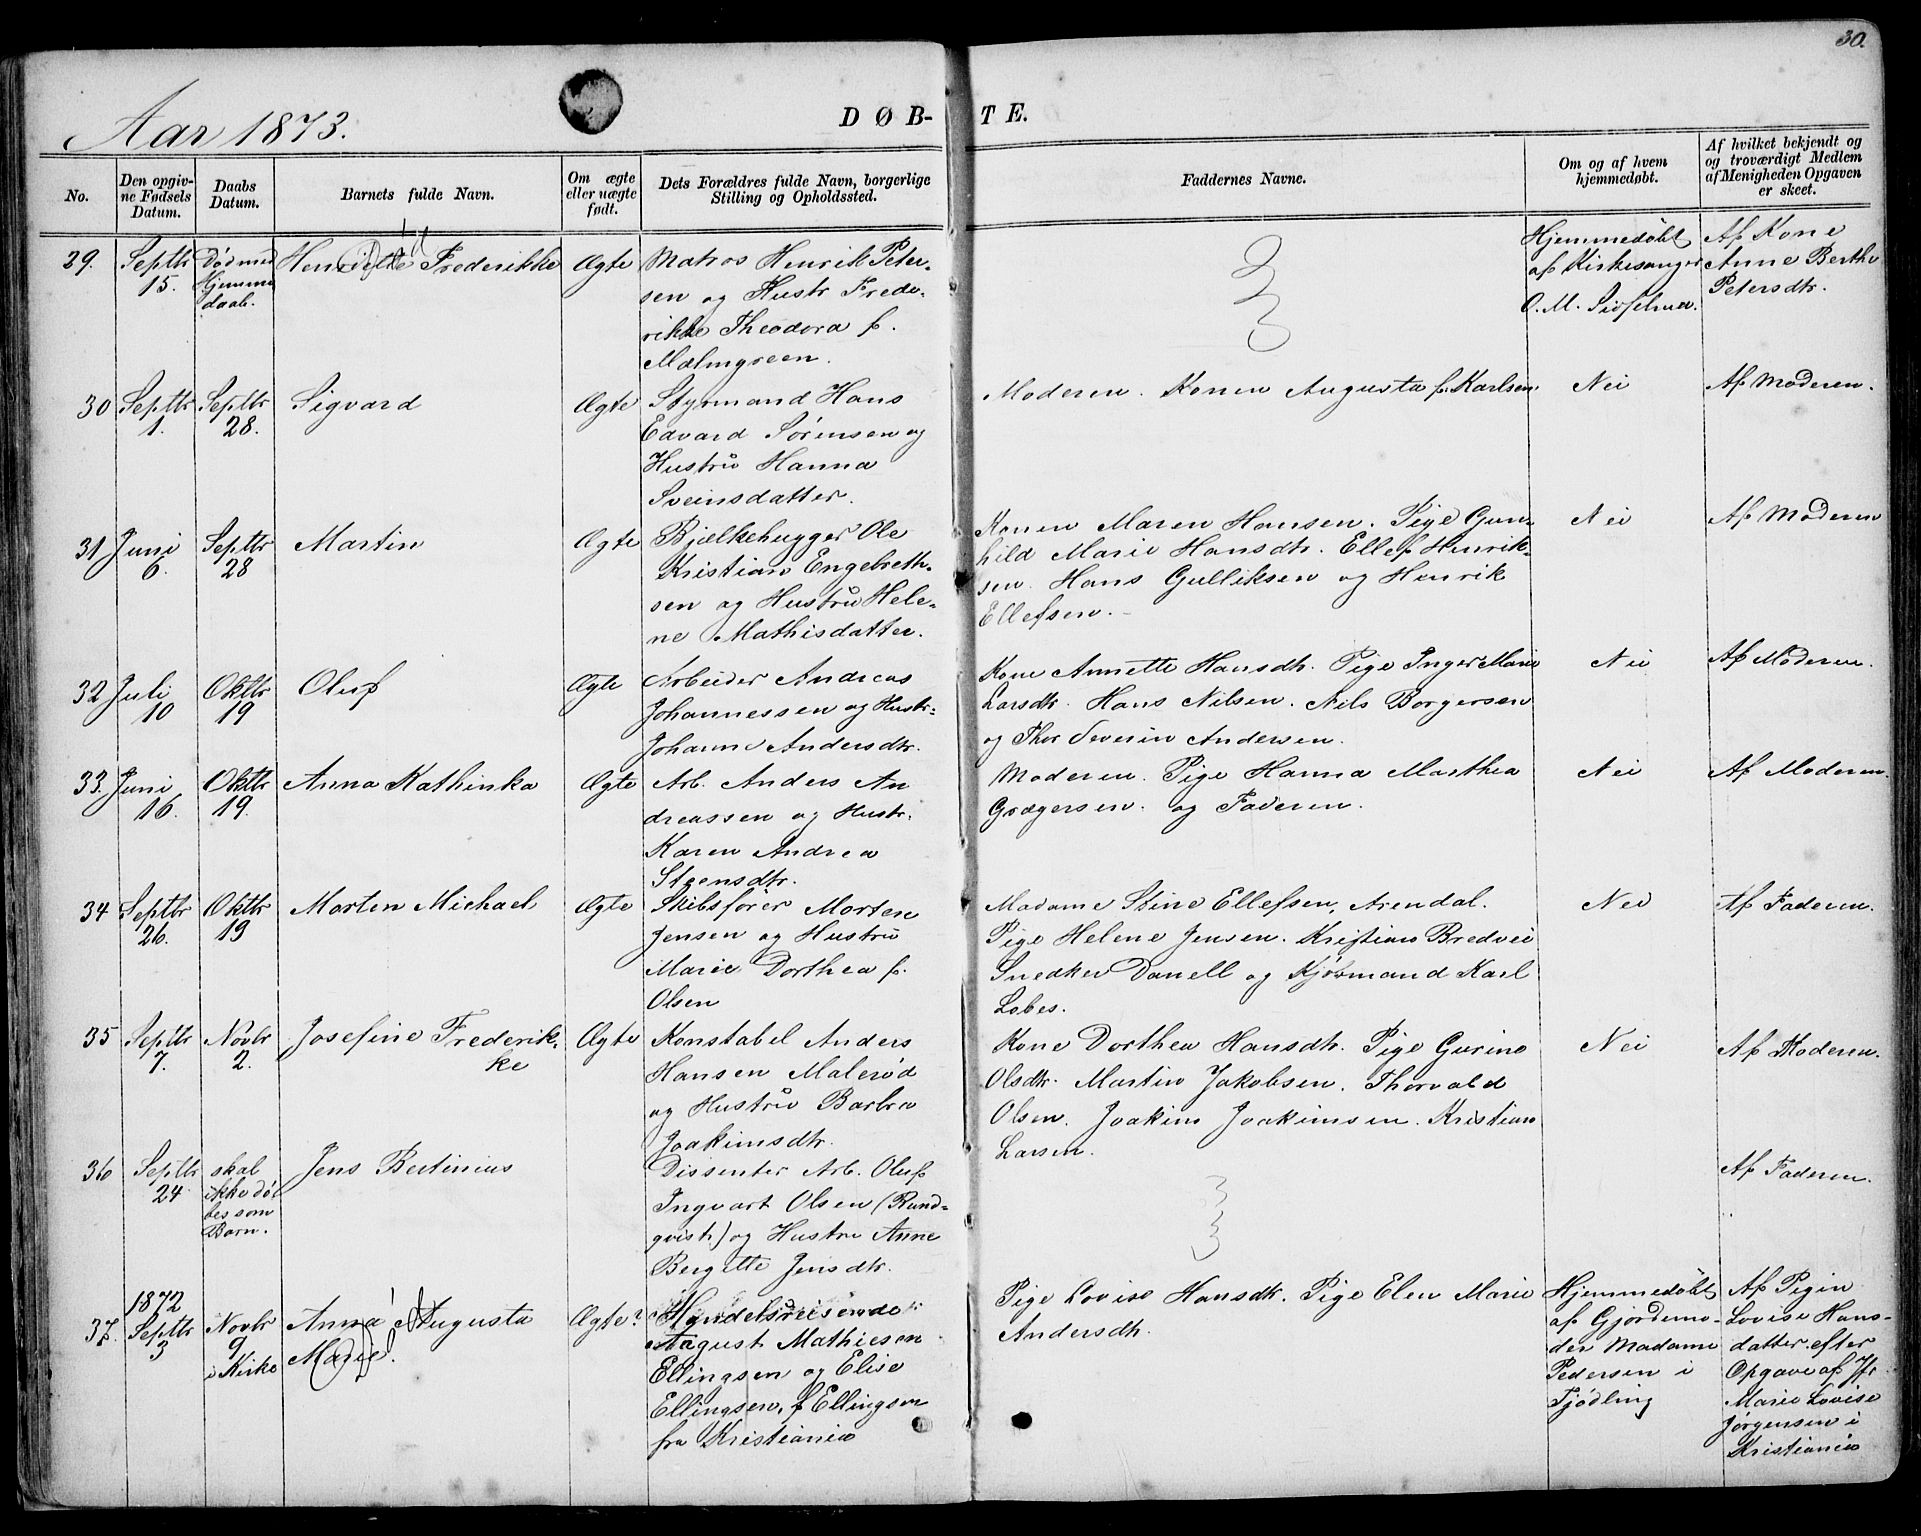 30.
Aar 1873.
DØB-
TE.
No.
Den opgiv-
ne Fødsels
Datum.
Daabs
Datum.
Barnets fulde Navn.
Om ægte
eller uægte
født.
Dets Forældres fulde Navn, borgerlige
Stilling og Opholdssted.
Faddernes Navne.
Om og af hvem
hjemmedøbt.
Af hvilket bekjendt og
og troværdigt Medlem
af Menigheden Opgaven
er skeet.
29.
Septbr
15.
Død med
Hjemme
daab.
Henriette Frederikke
Ægte
Matros Henrik Peter-
sen og Hustr Frede-
rikke Theodora f.
Malmgreen.
Hjemmedøbt
af Kirkesanger
O. M.
Af Kone
Anne Berthe
Petersdtr.
30
Septbr
1.
Septbr
28.
Sigvard
Ægte
Styrmand Hans
Edvard Sørensen og
Hustru Hanna
Sveinsdatter.
Moderen. Konen Augusta f. Karlsen
Nei
Af Moderen.
31
Juni
6.
Septbr
28
Martin
Ægte
Bjelkehugger Ole
Kristian Engebreth-
sen og Hustru Hele-
ne Mathisdatter.
Konen Maren Hansen. Pige Gun-
hild Marie Hansdtr. Ellef Henrik-
sen. Hans Gulliksen og Henrik
Ellefsen.
Nei
Af Moderen
32
Juli
10
Oktbr
19
Oluf
Ægte
Arbeider Andreas
Johannessen og Hustr-
Johanne Andersdtr.
Kone Annette Hansdtr. Pige Inger Marie
Larsdtr. Hans Nilsen. Nils Borgersen
og Thor Severin Andersen.
Nei
Af Moderen.
33.
Juni
16.
Oktbr
19.
Anna Kathinka
Ægte
Arb. Anders An
dreassen og Hustr.
Karen Andrea
Steensdtr.
Moderen. Pige Hanna Marthea
Grægersen. og Faderen.
Nei
Af Moderen.
34
Septbr
26.
Oktbr
19
Morten Michael
Ægte
Skibsfører Morten
Jensen og Hustru
Marie Dorthea f.
Olsen
Madame Stine Ellefsen, Arendal.
Pige Helene Jensen. Kristian Bredvei
Snedker Danell og Kjøbmand Karl
Lobes.
Nei
Af Faderen.
35
Septbr
7.
Novbr
2.
Josefine Frederik-
ke
Ægte
Konstabel Anders
Hansen Malerød
og Hustru Barbra
Joakimsdtr.
Kone Dorthea Hansdtr. Pige Gurine
Olsdtr. Martin Jakobsen. Thorvald
Olsen. Joakim Joakimsen. Kristian
Larsen.
Nei
Af Moderen.
36
Septbr
24
skal
ikke dø
bes som
Barn.
Jens Bertinius
Dissenter Arb. Oluf
Ingvart Olsen (Rund-
qvist.) og Hustru Anne
Bergitte Jensdtr.
Af Faderen.
37.
1872
Septbr
3
Novbr
9
i Kirke
Anna Augusta
Marie.
Ægte?
Handelsreisende
August Mathiesen
Ellingsen og Elise
Ellingsen, f. Ellingsen
fra Kristiania
Pige Lovise Hansdtr. Pige Elen Marie
Andersdtr.
Hjemmedøbt
af Gjordemo-
der Madame
Pedersen i
Tjødling
Af Pigen
Lovise Hans-
datter efter
Opgave af Jfr
Marie Lovise
Jørgensen i
Kristiania